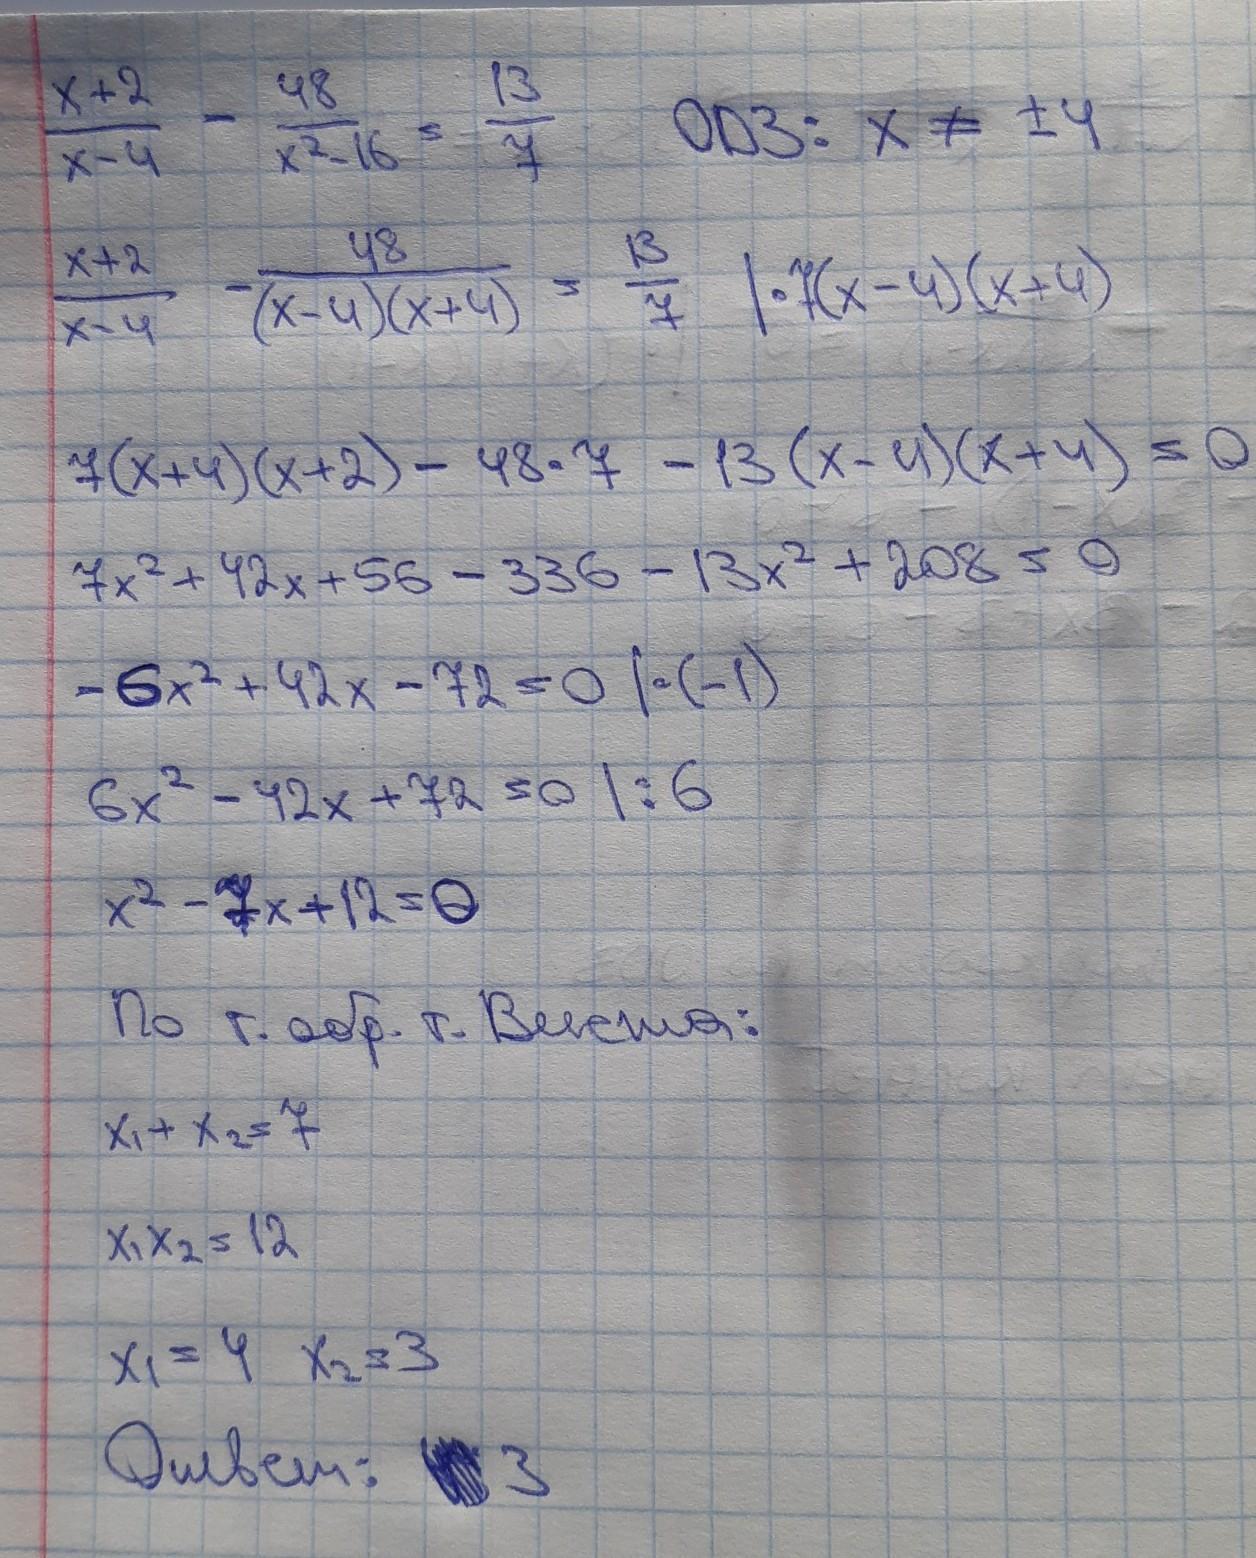 x+2/x-4 - 48/x²-16 = 13/7 ОДЗ: x ≠ ±4
x+2/x-4 - 48/(x-4)(x+4) = 13/7 |·7(x-4)(x+4)
7(x+4)(x+2) - 48·7 - 13(x-4)(x+4) = 0
7x² + 42x + 56 - 336 - 13x² + 208 = 0
-6x² + 42x - 72 = 0 |·(-1)
6x² - 42x + 72 = 0 |:6
x² - 7x + 12 = 0
По т. обр. т. Виета:
x₁ + x₂ = 7
x₁x₂ = 12
x₁ = 4 x₂ = 3
Ответ: 3